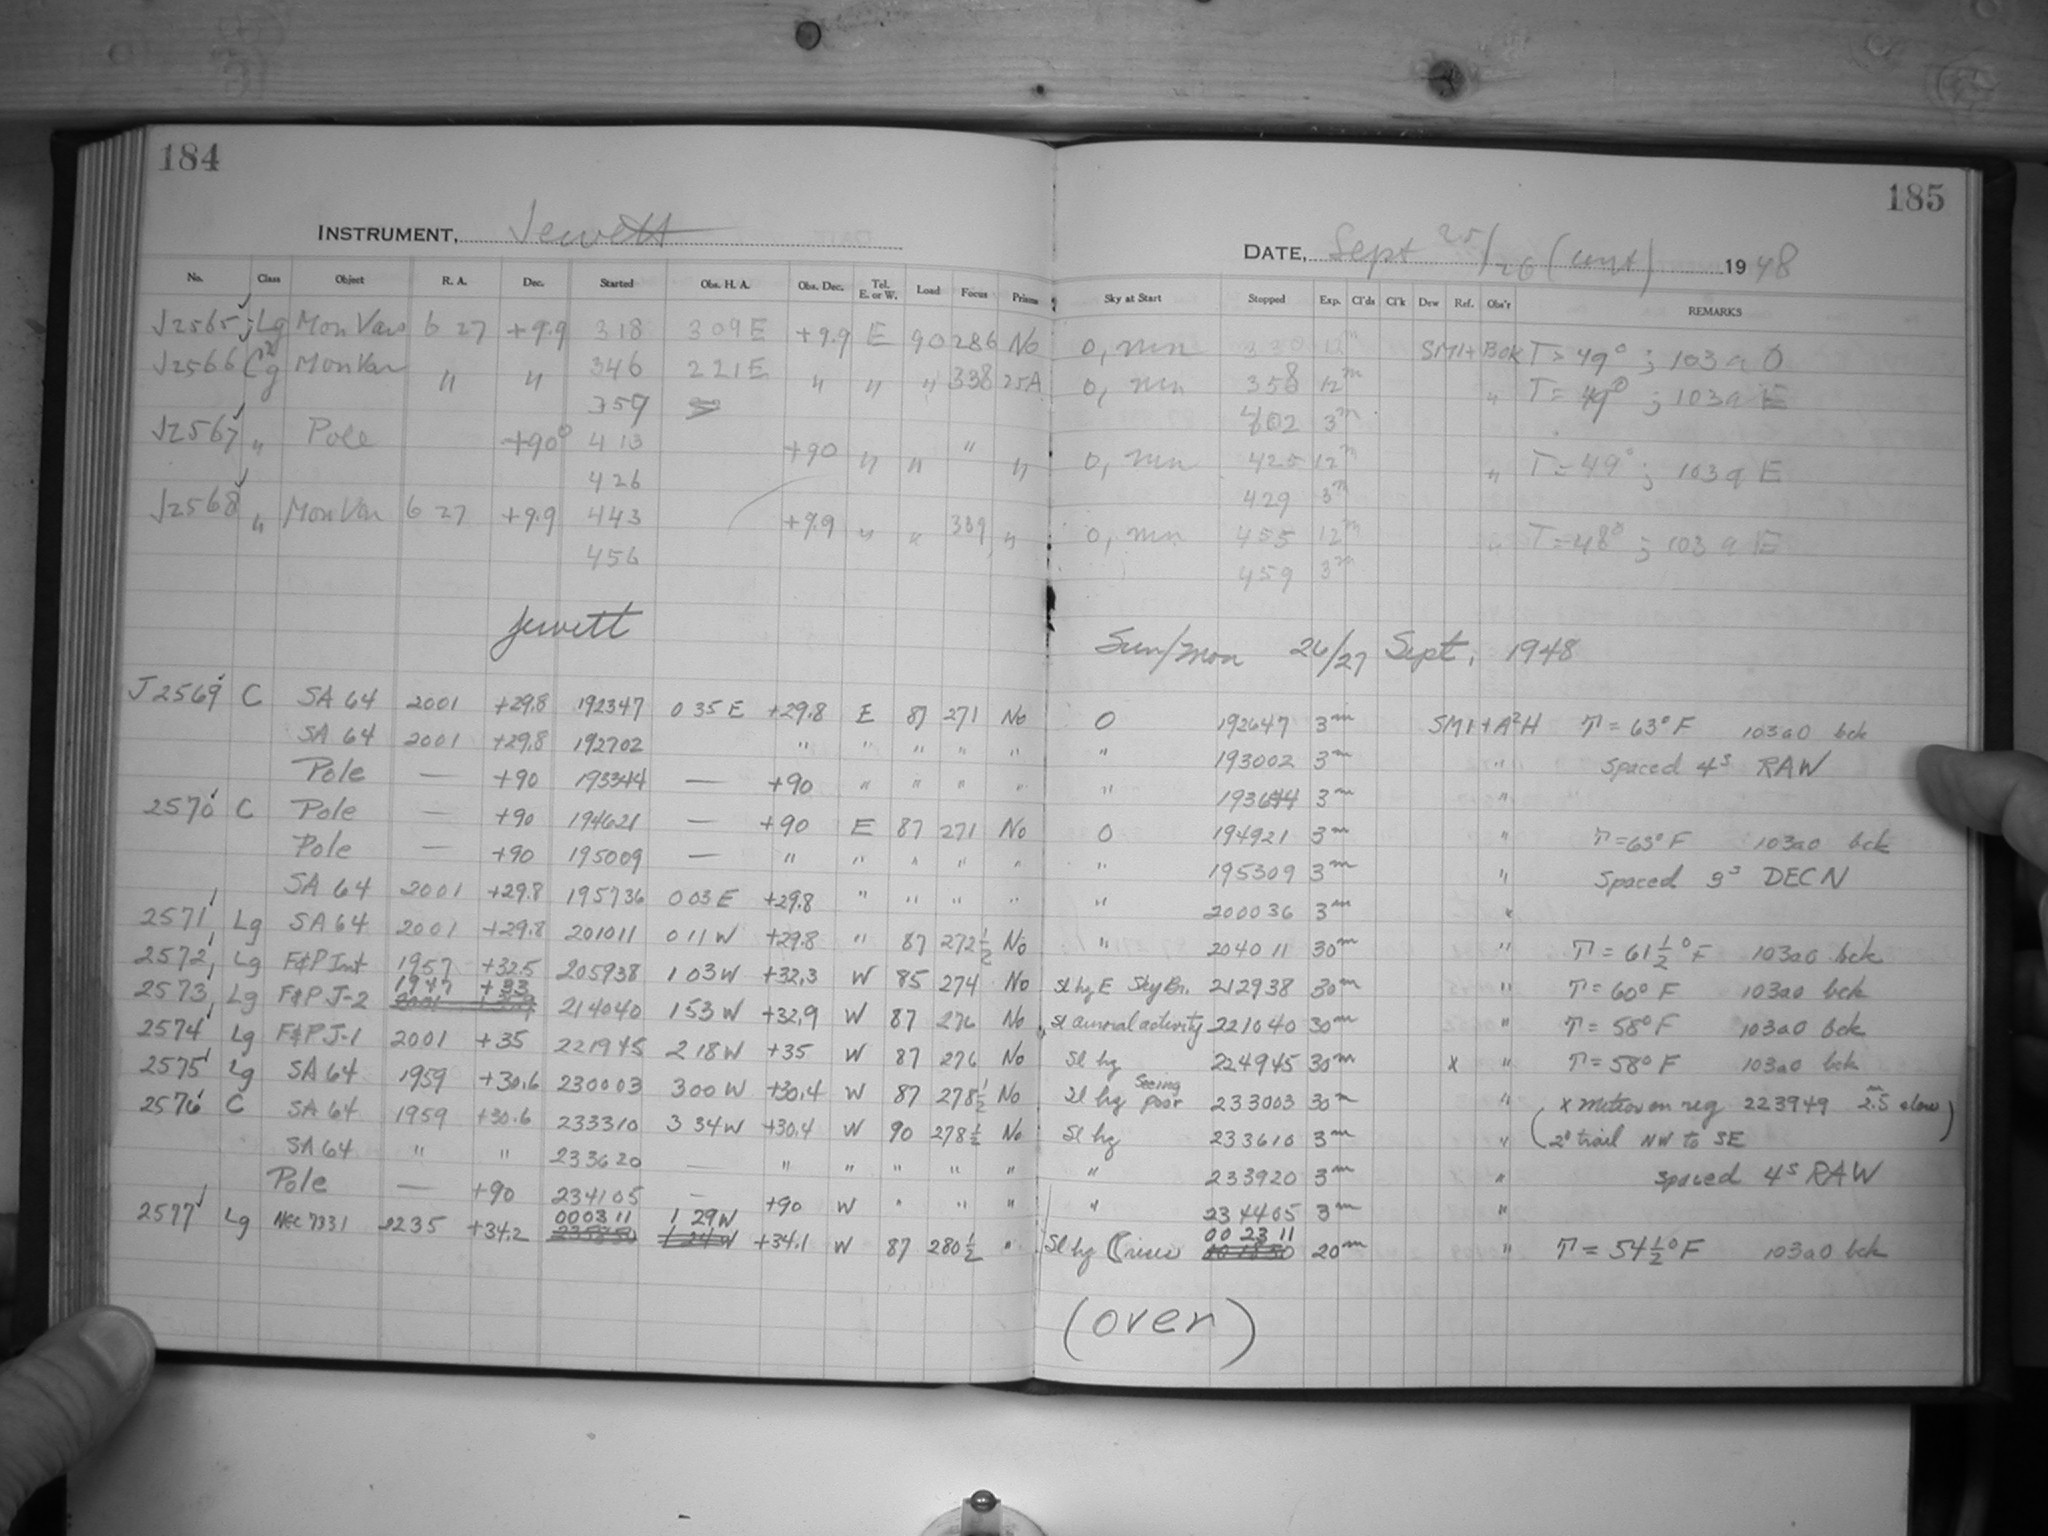 184
INSTRUMENT, Jewett
No. Class Object R. A. Dec. Started Obs. H. A. Obs. Dec. Tel. E. or W. Load Focus Prisms
J2565 Lg Mon Var 6 27 +9.9 318 309E +9.9 E 90 286 No
J2566 Mon Var " " 346 221E " " " 338 25A
359
J2567 " Pole +90° 413 +90 " " " "
426
J2568 " Mon Var 6 27 +9.9 443 +9.9 " " 339 "
456
Jewett
J2569 C SA 64 2001 +29.8 192347 0 35 E +29.8 E 87 271 No
SA 64 2001 +29.8 192702 " " " " "
Pole — +90 193344 — +90 " " " "
2570 C Pole — +90 194621 — +90 E 87 271 No
Pole — +90 195009 — " " " " "
SA 64 2001 +29.8 195736 0 03 E +29.8 " " " "
2571 Lg SA 64 2001 +29.8 201011 0 11 W +29.8 " 87 272½ No
2572 Lg F&P Int 1957 +32.5 205938 1 03 W +32.3 W 85 274 No
2573 Lg F&P J-2 1947 +33 214040 1 53 W +32.9 W 87 276 No
2574 Lg F&P J-1 2001 +35 221945 2 18 W +35 W 87 276 No
2575 Lg SA 64 1959 +30.6 230003 3 00 W +30.4 W 87 278½ No
2576 C SA 64 1959 +30.6 233310 3 34 W +30.4 W 90 278½ No
SA 64 " " 233620 — " " " " "
Pole — +90 234105 — +90 W " " "
2577 Lg NGC 7331 2235 +34.2 000311 1 29 W +34.1 W 87 280½ "
185
DATE, Sept 25/26 (cont) 1948
Sky at Start Stopped Exp. Cl'ds Cl'k Dew Ref. Obs'r REMARKS
0, mn 330 12m SMI+Bok T = 49° ; 103a O
0, mn 358 12m " T = 49° ; 103a E
402 3m
0, mn 425 12m " T = 49° ; 103a E
429 3m
0, mn 455 12m " T = 48° ; 103a E
459 3m
Sun/Mon 26/27 Sept, 1948
0 192647 3m SMI+A²H T = 63° F 103a0 bck
" 193002 3m " Spaced 4s RAW
" 193644 3m "
0 194921 3m " T = 63° F 103a0 bck
" 195309 3m " Spaced 3s DEC N
" 200036 3m "
" 204011 30m " T = 61½° F 103a0 bck
Sl hz E Sky Br. 212938 30m " T = 60° F 103a0 bck
" Sl auroral activity 221040 30m " T = 58° F 103a0 bck
Sl hz 224945 30m x " T = 58° F 103a0 bck
Sl hz Seeing poor 233003 30m " (x Meteor on reg 223949 2.5m slow)
Sl hz 233610 3m " 2° trail NW to SE
" 233920 3m " Spaced 4s RAW
" 234405 3m "
Sl hz ☾rises 00 23 11 20m " T = 54½° F 103a0 bck
(over)